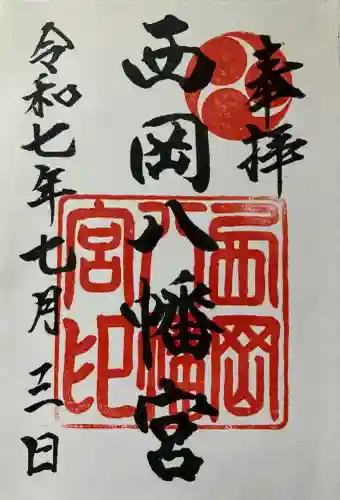 奉拝
西岡八幡宮
西岡八幡宮印
令和七年七月三日